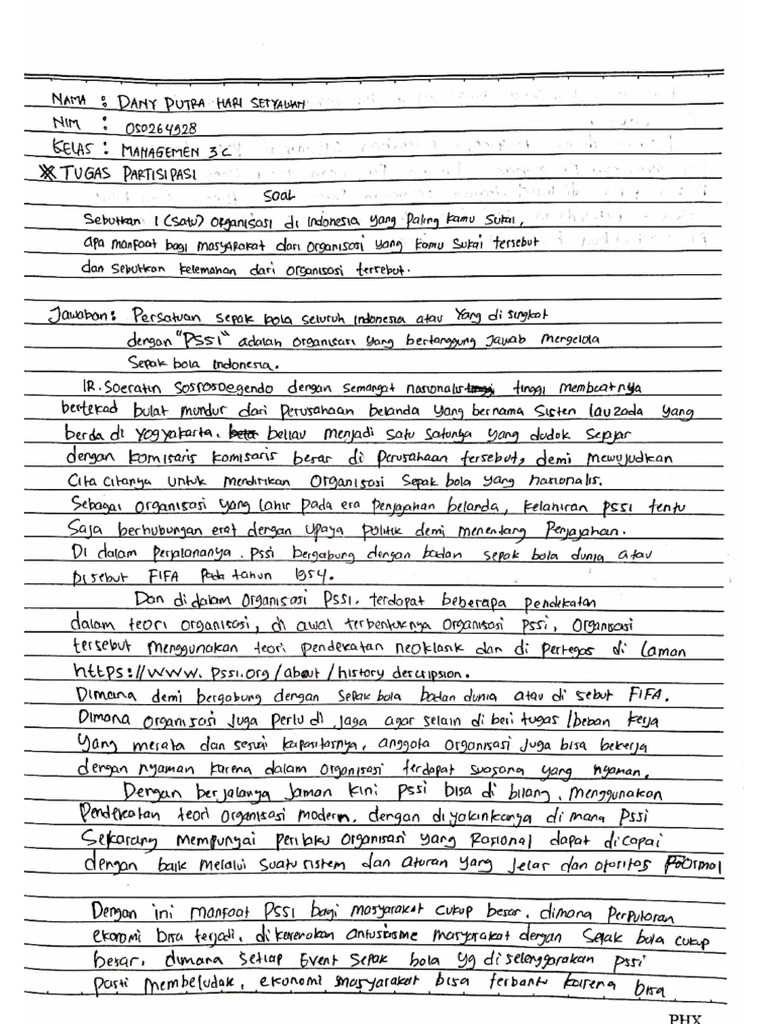 NAMA : DANY PUTRA HARI SETYAWAN
NIM : 050264928
KELAS : MANAGEMEN 3C
※ TUGAS PARTISIPASI
SOAL
Sebutkan 1 (satu) organisasi di Indonesia yang paling kamu sukai,
apa manfaat bagi masyarakat dari organisasi yang kamu sukai tersebut
dan sebutkan kelemahan dari organisasi tersebut.
Jawaban : Persatuan sepak bola seluruh indonesia atau Yang di singkat
dengan "PSSI" adalah organisasi yang bertanggung jawab mengelola
Sepak bola Indonesia.
IR. Soeratin Sosrosoegendo dengan semangat nasionalis tinggi membuatnya
bertekad bulat mundur dari perusahaan belanda yang bernama Sisten lauzada yang
berda di yogyakarta. beliau menjadi satu satunya yang duduk sejajar
dengan komisaris komisaris besar di perusahaan tersebut, demi mewujudkan
Cita citanya untuk mendirikan Organisasi Sepak bola yang nasionalis.
Sebagai organisasi yang lahir pada era penjajahan belanda, kelahiran PSSI tentu
Saja berhubungan erat dengan upaya politik demi menentang Penjajahan.
Di dalam perjalananya. Pssi bergabung dengan badan sepak bola dunia atau
Disebut FIFA Pada tahun 1954.
Dan didalam organisasi PSSI. terdapat beberapa pendekatan
dalam teori organisasi, di awal terbentuknya organisasi pssi, organisasi
tersebut menggunakan teori pendekatan neoklasik dan di pertegas di laman
https://www.pssi.org/about/history descripsion.
Dimana demi bergabung dengan sepak bola badan dunia atau di sebut FIFA.
Dimana organisasi juga perlu di jaga agar selain di beri tugas / beban kerja
yang merata dan sesuai kapasitasnya, anggota organisasi juga bisa bekerja
dengan nyaman karena dalam organisasi terdapat suasana yang nyaman.
Dengan berjalanya jaman kini pssi bisa di bilang. menggunakan
Pendekatan teori organisasi modern. dengan diyakinkanya di mana PSSI
Sekarang mempunyai perilaku organisasi yang Rasional dapat di capai
dengan baik melalui suatu sistem dan aturan yang jelas dan otoritas Formal
Dengan ini manfaat PSSI bagi masyarakat cukup besar. dimana Perputaran
ekonomi bisa terjadi. di karenakan antusiasme masyarakat dengan Sepak bola cukup
besar. dimana setiap Event sepak bola yg di selenggarakan pssi
pasti membeludak, ekonomi masyarakat bisa terbantu karena bisa
PHX